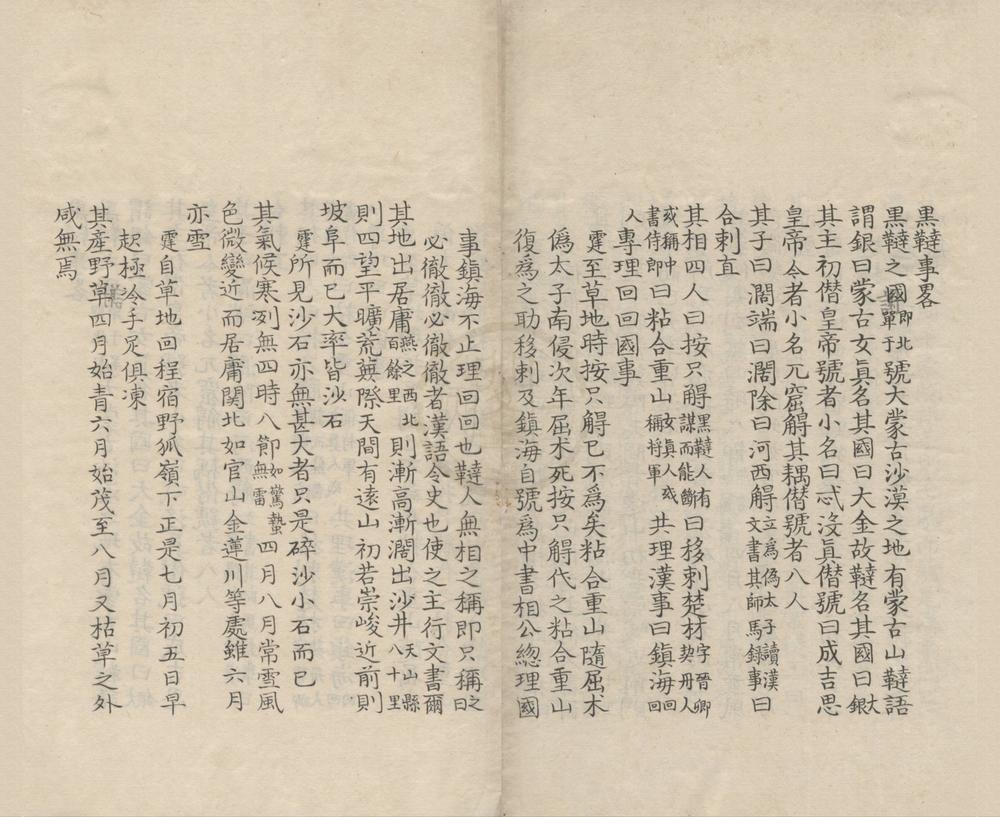 黒韃事畧
黒韃之國即北單于號大蒙古沙漠之地有蒙古山韃語
謂銀曰蒙古女真名其國曰大金故韃名其國曰大銀
其主初僣皇帝號者小名曰忒没真僣號曰成吉思
皇帝今者小名兀窟䚟其耦僣號者八人
其子曰濶端曰濶除曰河西䚟立為偽太子讀漢文書其師馬録事曰
合剌直
其相四人曰按只䚟黒韃人有謀而能斷曰移剌楚材字晉卿契丹人
或稱中書侍郎曰粘合重山女真人或稱將軍共理漢事曰鎮海回回
人專理回回國事
霆至草地時按只䚟已不為矣粘合重山隨屈朮
偽太子南侵次年屈朮死按只䚟代之粘合重山
復為之助移剌及鎮海自號為中書相公総理國
事鎮海不止理回回也韃人無相之稱即只稱之曰
必徹徹必徹徹者漢語令史也使之主行文書爾
其地出居庸燕之西北百餘里則漸高漸濶出沙井天山縣八十里
則四望平曠荒蕪際天間有遠山初若崇峻近前則
坡阜而已大率皆沙石
霆所見沙石亦無甚大者只是碎沙小石而已
其氣候寒冽無四時八節如驚蟄無雷四月八月常雪風
色微變近而居庸関北如官山金蓮川等處雖六月
亦雪
霆自草地回程宿野狐嶺下正是七月初五日早
起極冷手足俱凍
其產野草四月始青六月始茂至八月又枯草之外
咸無焉